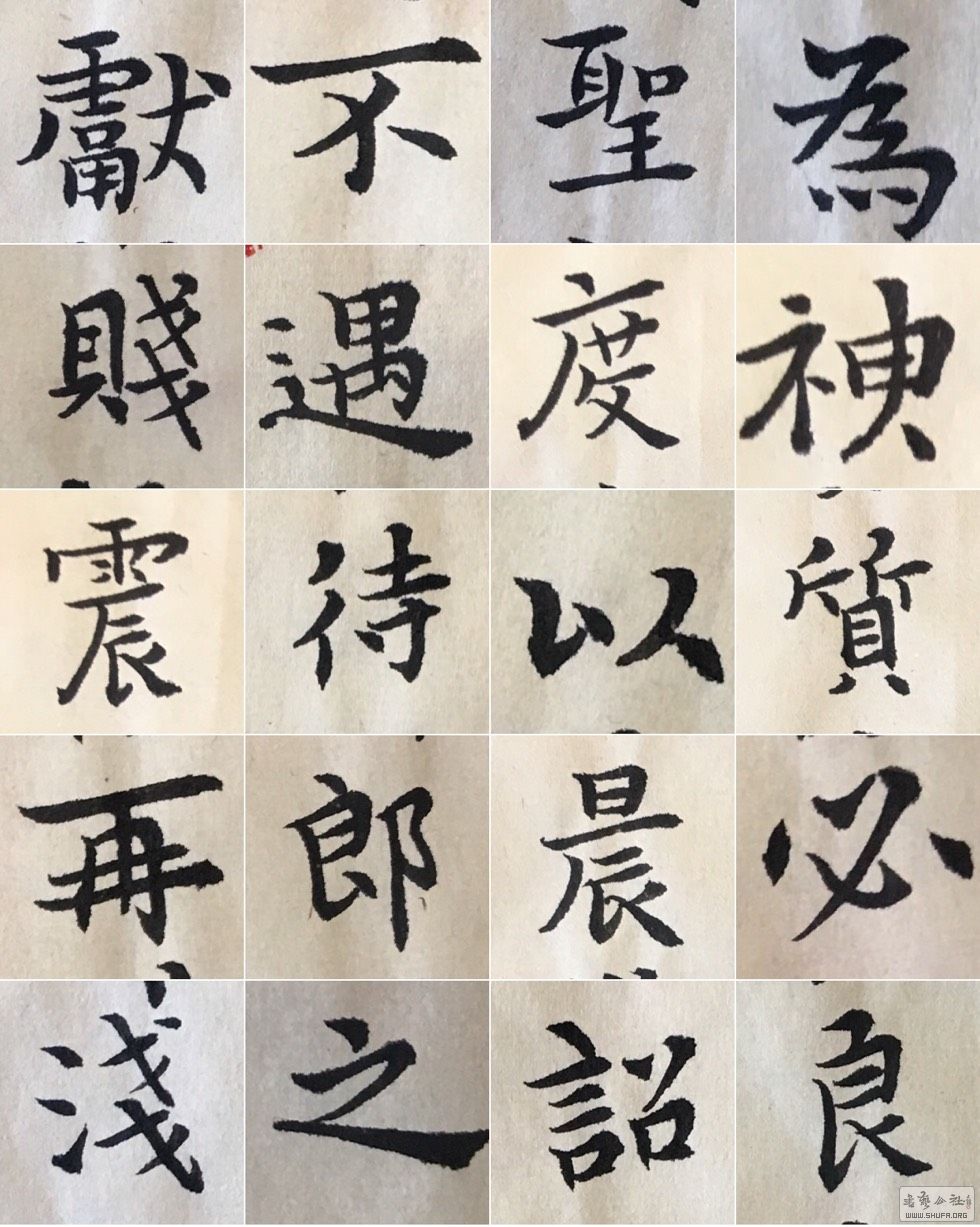 獻不聖為
賤遇度神
震待以質
再郎晨必
淺之詔良
WWW.SHUFA.ORG